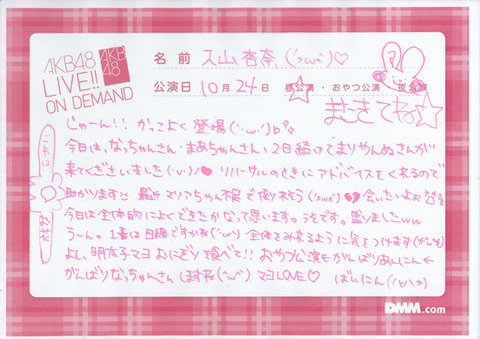 AKB48
LIVE!!
ON DEMAND
AKB
48
名 前 入山杏奈('ω')♡
公演日 10月24日 昼公演・おやつ公演・夜公演
またきてね☆
じゃーん!! かっこよく登場
今日は、なっちゃんさん・まあちゃんさん・2日続けてまりやんぬさんが
来てくださいました リハーサルのときにアドバイスをくれるので
助かります 最近マリアちゃん不足で倒れそう 会いたいよぉ
今日は全体的によくできたかなって思います。うそです。盛りましたww
う〜ん。1番は目線ですかね 全体をみれるように気をつけます
よし、明太子マヨおにぎり食べて!! おやつ公演もがんばりあんにん
がんばりなっちゃんさんしますね マヨLOVE♡ ばいにん
DMM.com